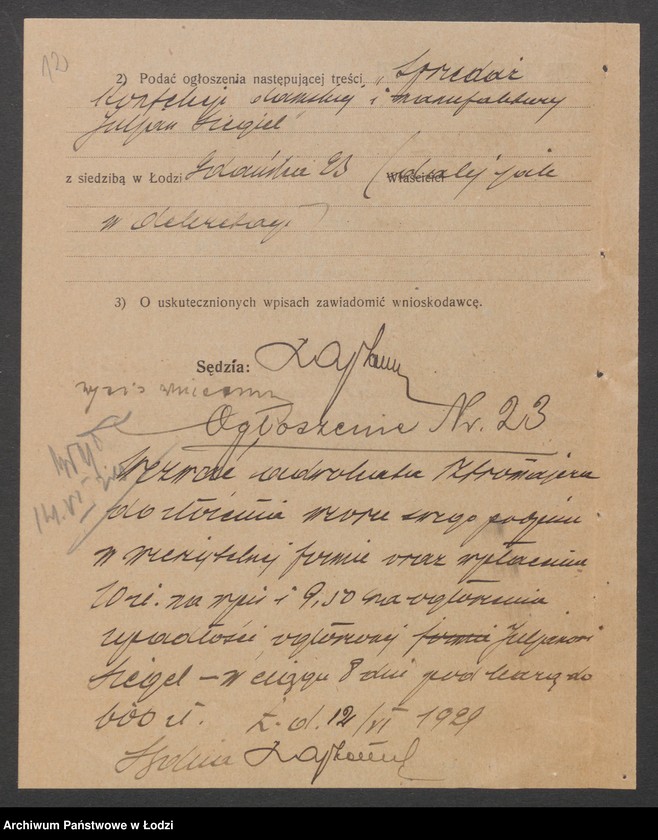 12)
2) Podać ogłoszenia następującej treści „Sprzedaż
konfekcji damskiej i manufaktury
Juljan Siegiel"
z siedzibą w Łodzi Gdańska 23 (dalej jak
Właściciel
w dekrecie)
3) O uskutecznionych wpisach zawiadomić wnioskodawcę.
Sędzia:
wpis
Ogłoszenie Nr. 23
Wezwać adwokata
do złożenia wzoru swego podpisu
w czytelnej formie oraz wpłacenia
10 zł. na wpis i 9,50 na ogłoszenie
upadłości ogłoszonej firmie Juljanowi
Siegel – w ciągu 8 dni pod karą do
600 zł. Ł. d. 12/VI 1929
Sędzia
Archiwum Państwowe w Łodzi